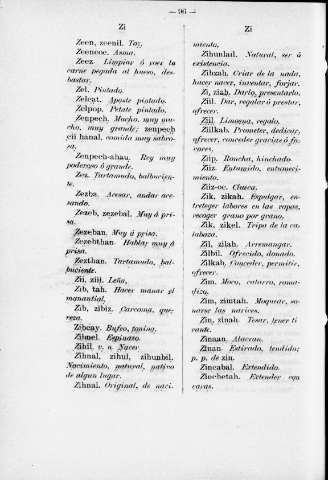 — 96 —
Zi
Zeen, zeenil. Tos,
Zeencoc. Asma.
Zeez. Limpiar ó roer la
carne pegada al hueso, des-
bastar.
Zel. Pintado.
Zelcat. Aposte pintado.
Zelpop. Petate pintado.
Zenpech. Mucho, muy mu-
cho, muy grande; zenpech
cii hanal, comida muy sabro-
sa.
Zenpech-ahau. Rey muy
poderoso ó grande.
Zez. Tartamudo, balbucien-
te.
Zezba. Acesar, andar ace-
sando.
Zezeb, zezebal. Muy á pri-
sa.
Zezeban. Muy á prisa.
Zezebthan. Hablar muy á
prisa.
Zezthan. Tartamudo, bal-
buciente.
Zii, ziil. Leña,
Zib, tah. Hacer manar el
manantial,
Zib, zibiz. Carcoma, que-
reza.
Zibcay. Bufeo, tonina.
Zibnel. Espinazo.
Zihil. v. n. Nacer
Zihnal, zihul, zihunbil,
Nacimiento, natural, nativo
de algun lugar.
Zihnal. Original, de naci-
Zi
miento,
Zihunlail. Natural, ser ó
existencia.
Zihzah. Criar de la nada,
hacer nacer, inventar, forjar.
Zi, ziah. Darlo, presentarlo.
Ziil. Dar, regalar ó prestar,
ofrecer.
Ziil. Limosna, regalo.
Ziilkab. Prometer, dedicar,
ofrecer, conceder gracias ó fa-
vores.
Ziip. Roncha, hinchado.
Ziiz. Entumido, entumeci-
miento.
Ziiz-oc. Clueca.
Zik, zikah. Espulgar, en-
treteger labores en las capas,
recoger grano por grano.
Zik, zikel. Tripa de la ca-
labaza.
Zil, zilah. Arremangar.
Zilbil. Ofrecido, donado.
Zilkah, Conceder, permitir,
ofrecer.
Zim. Moco, catarro, roma-
dizo,
Zim, zimtah. Moquear, so-
narse las narices.
Zin, zinah. Tesar, tener ti
rante.
Zinaan. Alacran.
Zinan Estirado, tendido;
p. p. de zin.
Zincabal. Extendido.
Zinchetah. Extender con
caras.